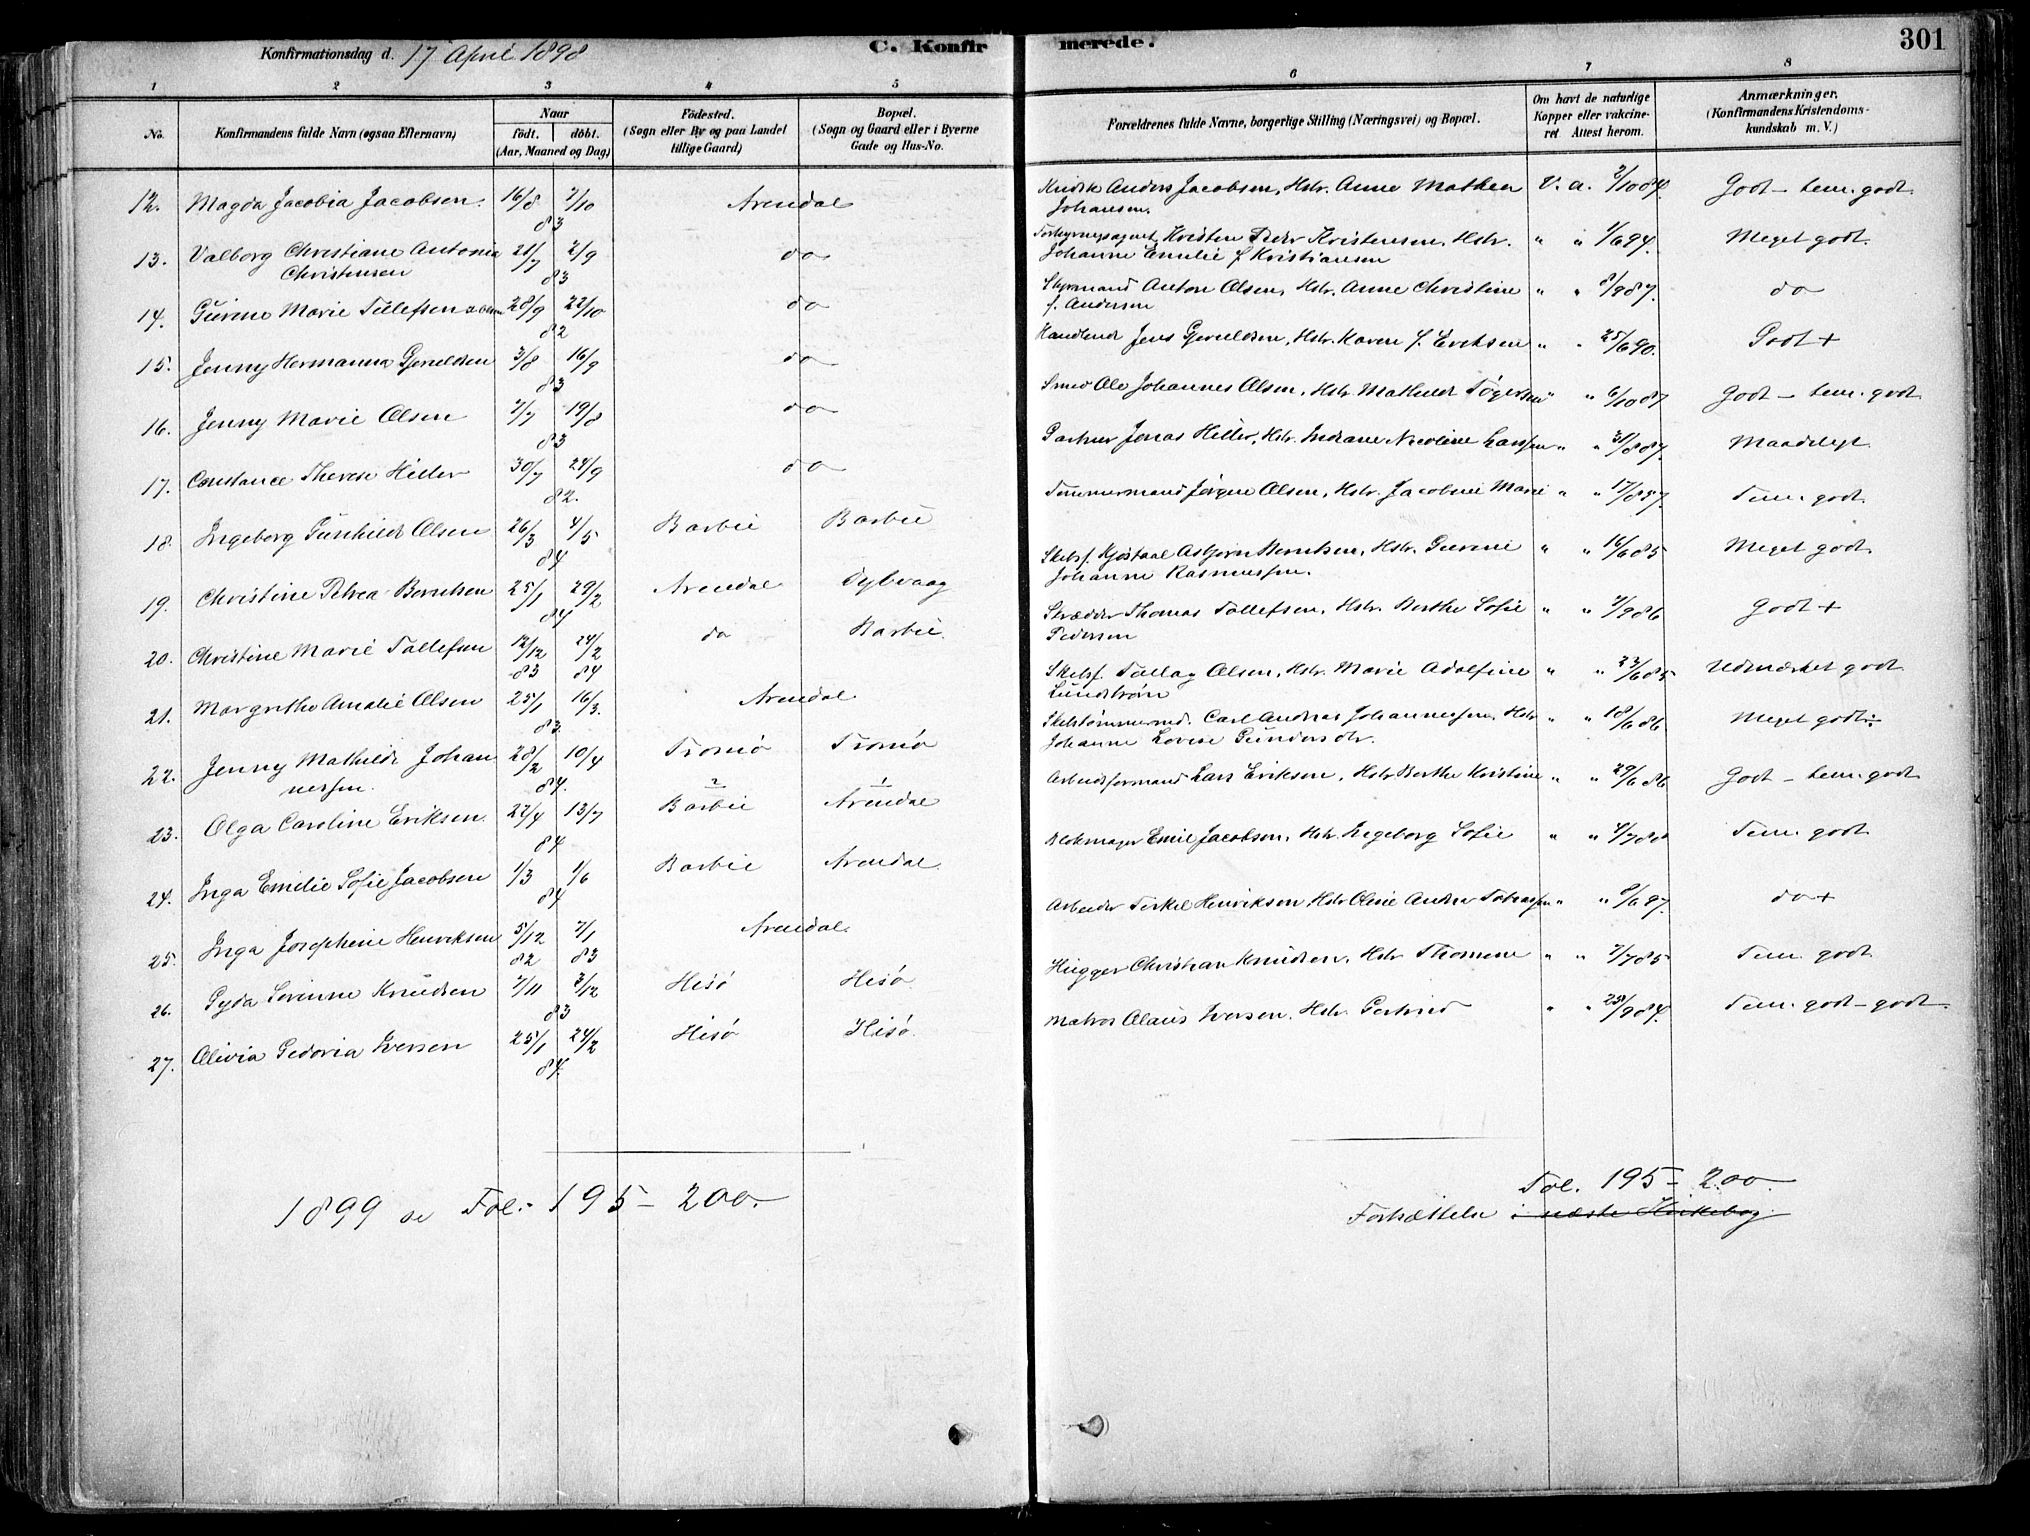 Konfirmationsdag d. 17 April 1898
C. Konfir merede.
301
1 2 3 4 5 6 7 8
No.
Konfirmandens fulde Navn (ogsaa Efternavn)
Naar
födt. döbt.
(Aar, Maaned og Dag)
Födested.
(Sogn eller By og paa Landet
tillige Gaard)
Bopæl.
(Sogn og Gaard eller i Byerne
Gade og Hus-No.
Forældrenes fulde Navne, borgerlige Stilling (Næringsvei) og Bopæl.
Om havt de naturlige
Kopper eller vakcine-
ret Attest herom.
Anmærkninger.
(Konfirmandens Kristendoms-
kundskab m. V.)
12. Magda Jacobia Jacobsen. 16/8 7/10 83 Arendal Anders Jacobsen, Hstr. Anne Mathea V. a. 2/10 84. Godt – tem. godt.
Johansen.
13. Valborg Christiane Antonia 21/7 2/9 83 do Kristen Peder Kristensen, Hstr. " " 1/6 94. Meget godt.
Christensen Johanne Emilie f Kristiansen
14. Gurine Marie Tallefsen 28/9 22/10 82 do Styrmand Anton Olsen, Hstr. Anne Christine " " 8/9 87. do
f. Andersen
15. Jenny Hermanna Gjeruldsen 3/8 16/9 83 do Jens Gjeruldsen, Hstr. Karen f. Eriksen " " 25/6 90. Godt +
16. Jenny Marie Olsen 7/7 19/8 83 do Smed Ole Johannes Olsen, Hstr. Mathilde " " 6/10 87 Godt – tem. godt
17. Constance Therese Hiller 30/7 24/9 82. do Gartner Jonas Hiller, Hstr. Indiane Nicoline Larssen " " 31/8 87. Maadeligt
18. Ingeborg Gunhilde Olsen 26/3 4/5 84 Barbu Barbu Tømmermand Jörgen Olsen, Hstr. Jacobine Marie " " 17/8 87. Tem. godt.
19. Christine Petrea Berntsen 25/1 29/2 84 Arendal Dybvaag Skibsf. Asbjørn Berntsen, Hstr. Gurine " " 16/6 85 Meget godt.
Johanne Rasmussen.
20. Christine Marie Tallefsen 12/12 83 24/2 84 do Barbu. Skrædder Thomas Tallefsen, Hstr. Berthe Sofie " " 7/9 86 Godt +
Pedersen
21. Margrethe Amalie Olsen 25/1 16/3. 83. Arendal Skibsf. Tallag Olsen, Hstr. Marie Adolfine " " 23/6 85 Udmærket godt
Lundstrøm
22. Jenny Mathilde Johan 28/2 10/4 84. Tromö Tromö Carl Andreas Johannessen, Hstr " " 18/6 86 Meget godt
nessen. Johanne Lovise Gundersdtr.
23. Olga Caroline Eriksen 27/4 13/7 84 Barbu Arendal Arbeidsformand Lars Eriksen, Hstr Berthe Kristine " " 29/6 86 Godt – tem. godt
24. Inga Emelie Sofie Jacobsen 1/3 1/6 84 Barbu Arendal Blokmager Emil Jacobsen, Hstr. Ingeborg Sofie " " 4/7 88 Tem. godt
25. Inga Josephine Henriksen 5/12 82 7/1 83 Arendal. Arbeider Terkel Henriksen, Hstr Oline Andrea Tobiassen " " 8/6 97. do +
26. Gyda Sorinne Knudsen 7/11 3/12 83 Hisö Hisö Hugger Christian Knudsen, Hstr Thomine " " 7/7 85 Tem. godt
27. Olivia Gedoria Iversen 25/1 24/2 84. Hisö Hisö Matros Olaus Iversen, Hstr. Gertrud " " 25/9 84. Tem. godt – godt.
1899 se Fol. 195 – 200.
Fol. 195 – 200.
Fortsættelse i næste Kirkebog